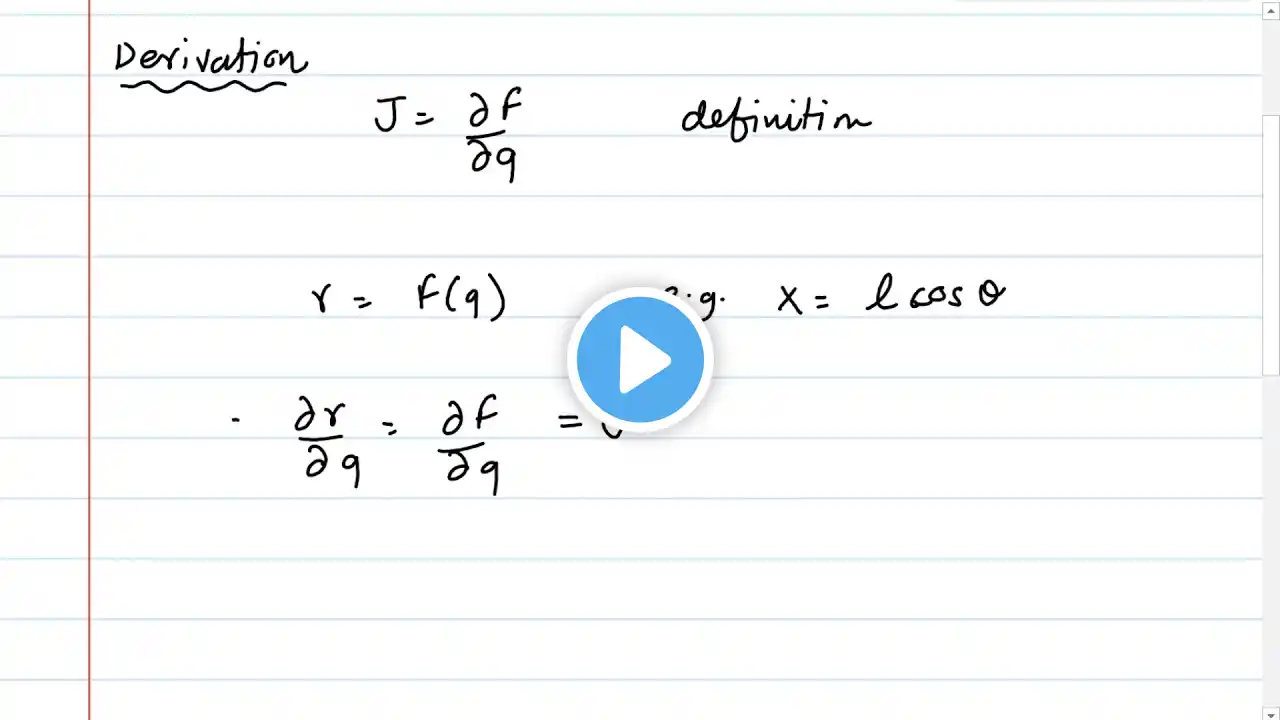 Derivation
J = ∂f/∂q definition
r = f(q) e.g. x = l cos θ
∂r/∂q = ∂f/∂q =